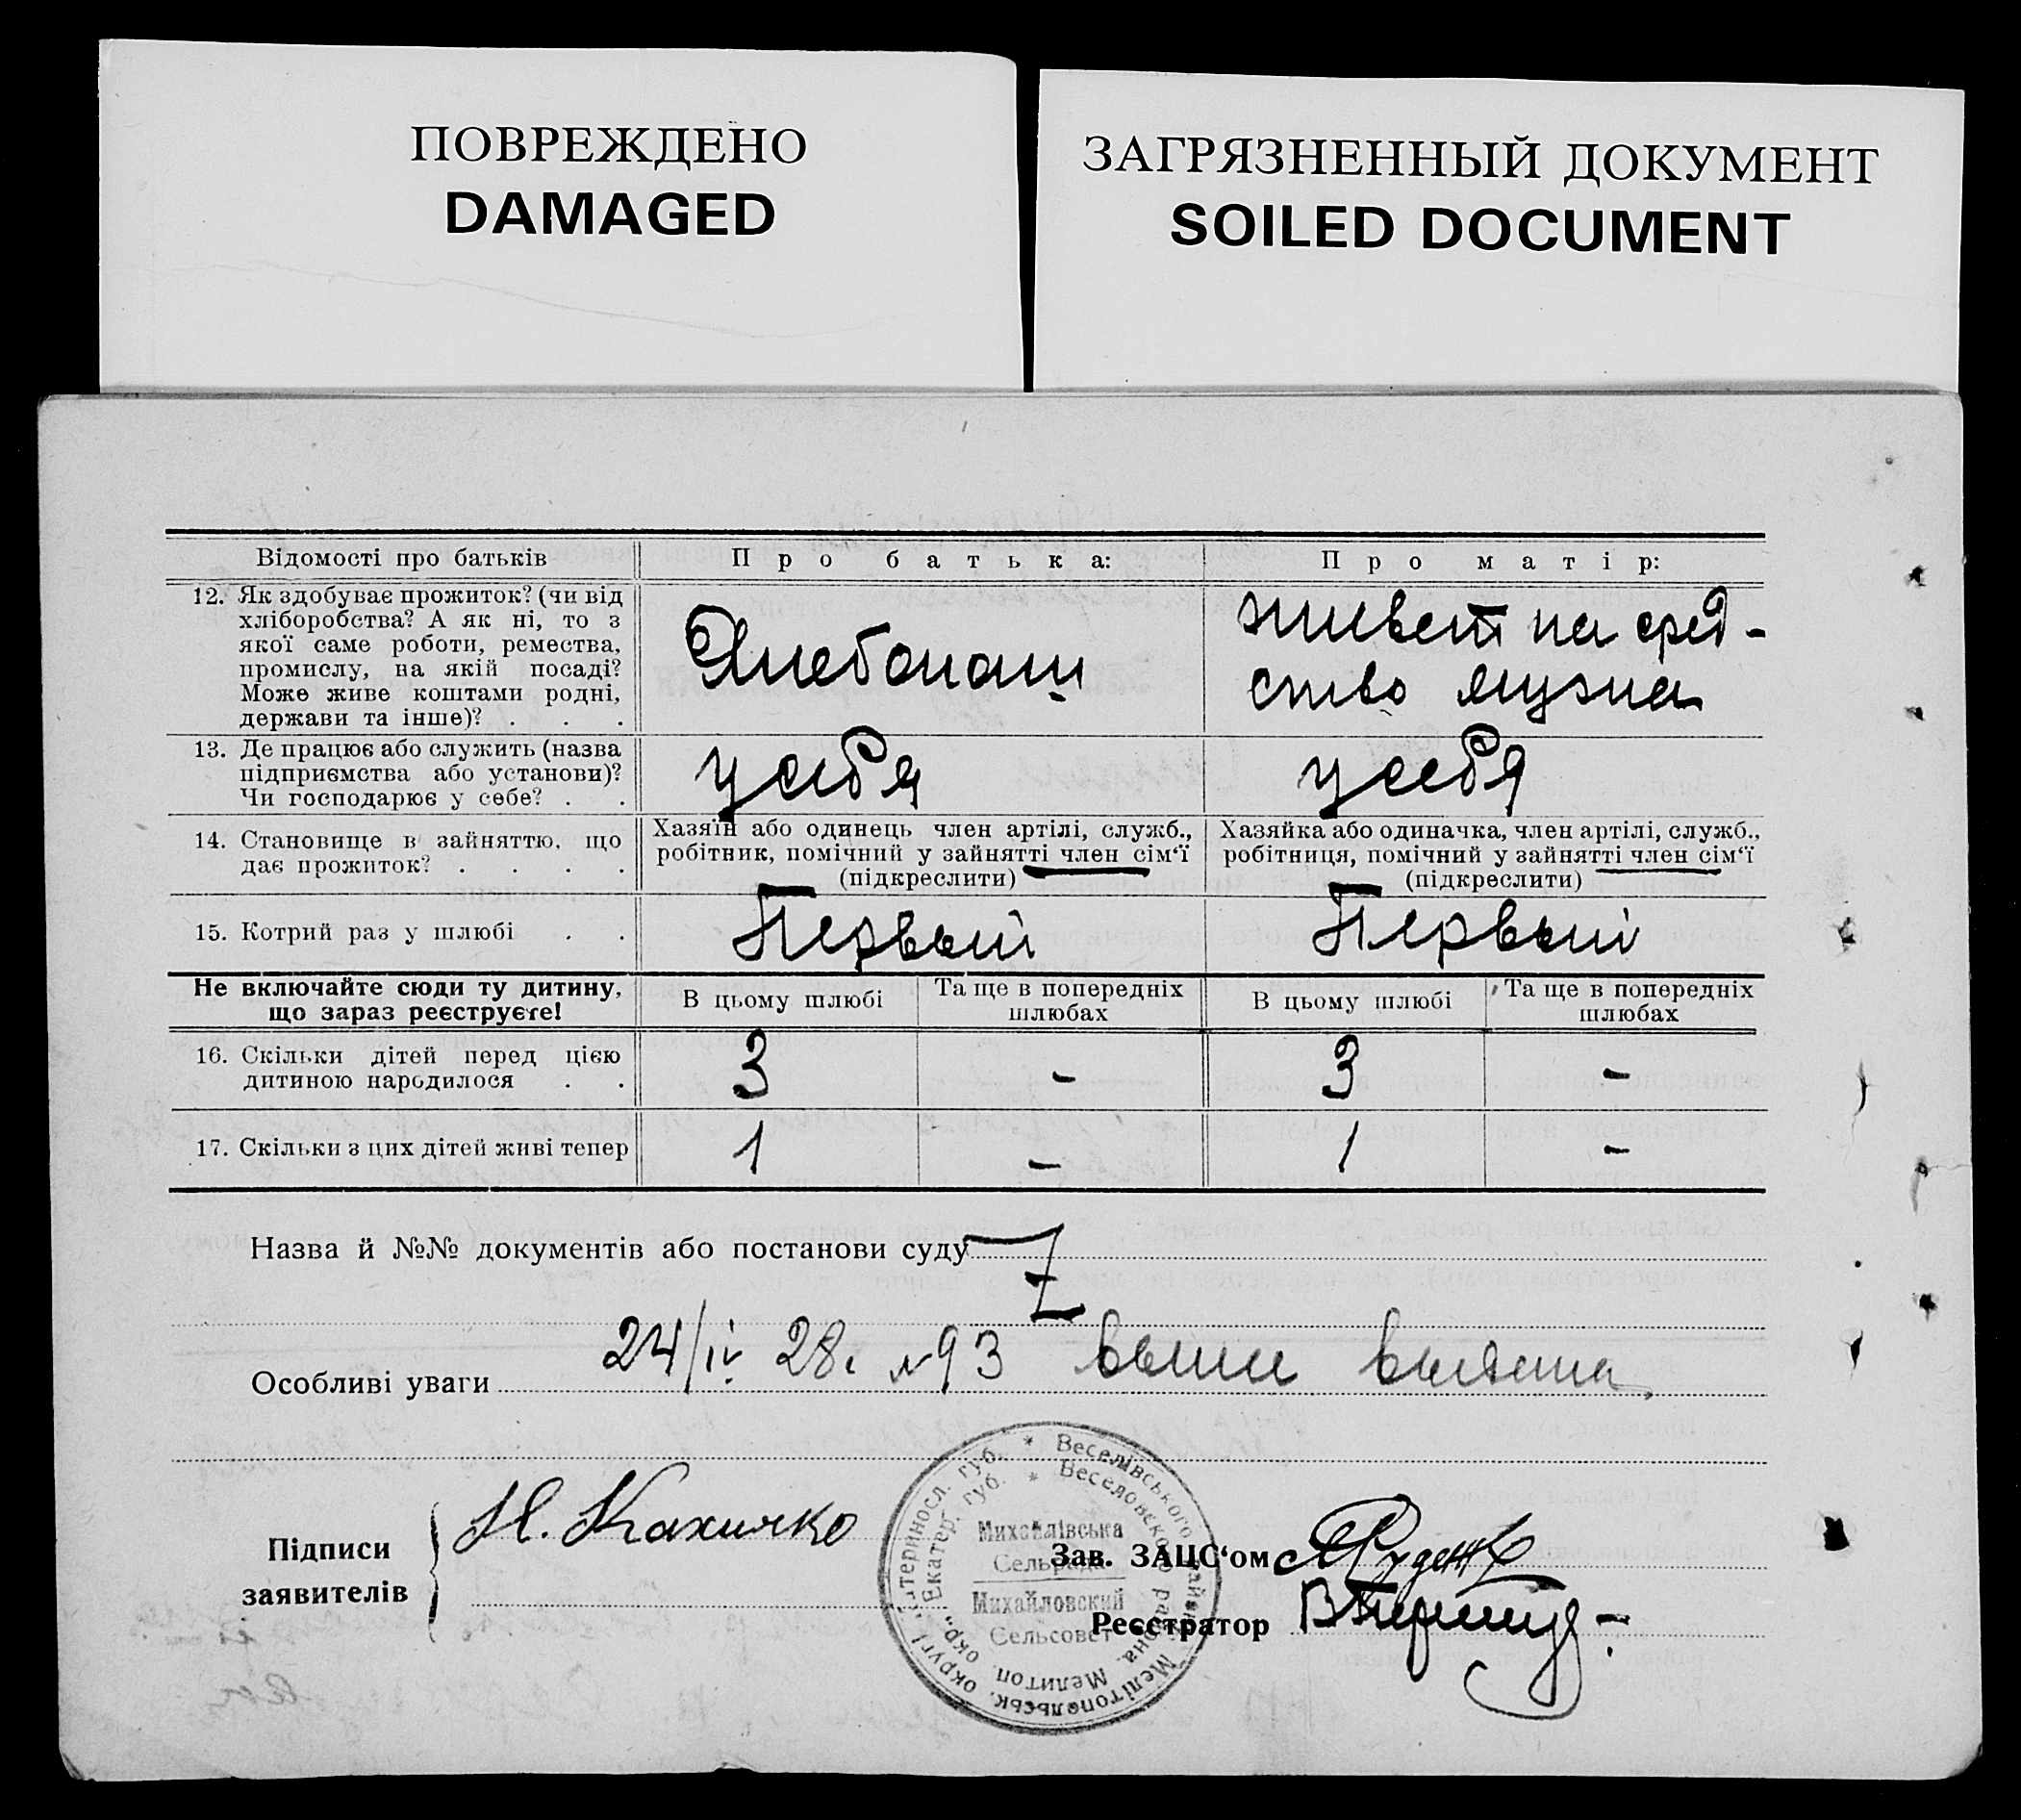 ПОВРЕЖДЕНО
DAMAGED
ЗАГРЯЗНЕННЫЙ ДОКУМЕНТ
SOILED DOCUMENT
Відомості про батьків
Про батька:
Про матір:
12. Як здобуває прожиток? (чи від
хліборобства? А як ні, то з
якої саме роботи, ремества,
промислу, на якій посаді?
Може живе коштами родні,
держави та інше)? . . .
Хлебопаш
живет на сред-
ство мужа
13. Де працює або служить (назва
підприємства або установи)?
Чи господарює у себе? . .
у себя
у себя
14. Становище в зайняттю, що
дає прожиток? . . . .
Хазяїн або одинець член артілі, служб.,
робітник, помічний у зайнятті член сім‘ї
(підкреслити)
Хазяйка або одиначка, член артілі, служб.,
робітниця, помічний у зайнятті член сім‘ї
(підкреслити)
15. Котрий раз у шлюбі . .
Первый
Первый
Не включайте сюди ту дитину,
що зараз реєструєте!
В цьому шлюбі
Та ще в попередніх
шлюбах
В цьому шлюбі
Та ще в попередніх
шлюбах
16. Скільки дітей перед цією
дитиною народилося . .
3
-
3
-
17. Скільки з цих дітей живі тепер
1
-
1
-
Назва й №№ документів або постанови суду
Особливі уваги
24/IV 28. №93
Підписи
заявителів
Зав. ЗАЦС‘ом
Реєстратор
Веселівського
Мелітопольськ. округі
Веселовского района. Мелитоп. окр., Екатер. губ.
Михайлівська
Сельрада
Михайловский
Сельсовет